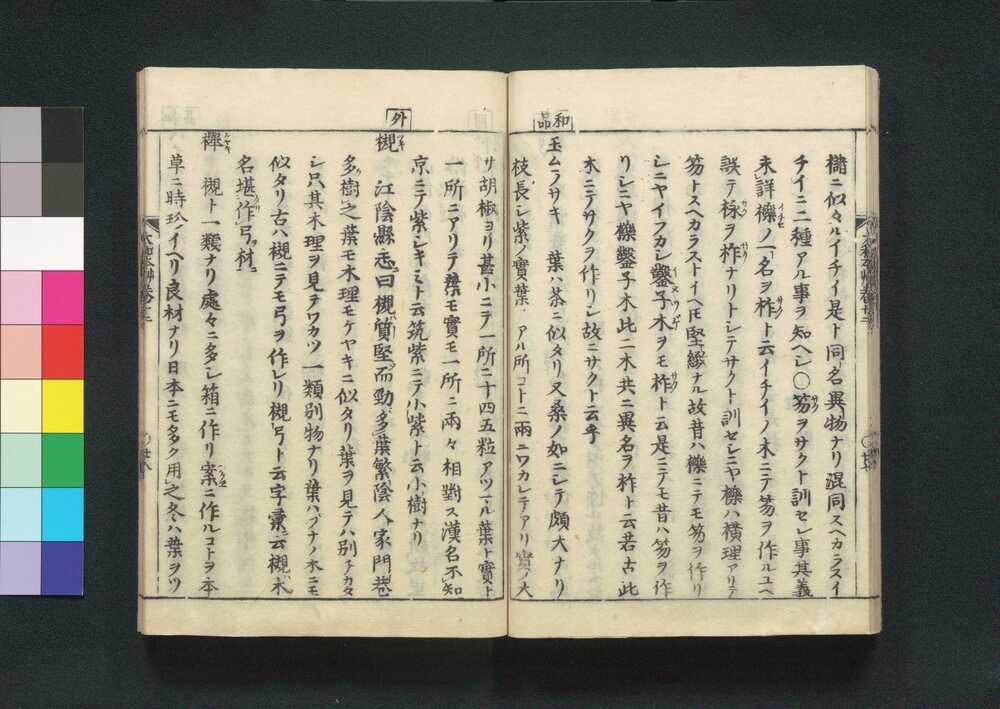 櫧ニ似タルイチイ是ト同名異物ナリ混同スヘカラスイ
チイニ二種アル事ヲ知ヘシ〇笏ヲサクト訓セシ事其義
未詳櫟ノ一名ヲ柞ト云イチイノ木ニテ笏ヲ作ルユヘ
誤テ椽ヲ柞ナリトシテサクト訓セシニヤ櫟ハ横理アリテ
笏トスヘカラストイヘ𪜈堅緻ナル故昔ハ櫟ニテモ笏ヲ作リ
シニヤイフカシ鑿子木ヲモ柞ト云是ニテモ昔ハ笏ヲ作
リシニヤ櫟鑿子木此二木共ニ異名ヲ柞ト云若古此
木ニテサクヲ作リシ故ニサクト云乎
和品
玉ムラサキ 葉ハ茶ニ似タリ又桑ノ如ニシテ頗大ナリ
枝長シ紫ノ實葉 アル所コトニ兩ニワカレテアリ實ノ大
サ胡椒ヨリ甚小ニテ一所ニ十四五粒アツマル葉ト實ト
一所ニアリテ葉モ實モ一所ニ兩々相對ス漢名不知
京ニテ紫シキミト云筑紫ニテ小紫ト云小樹ナリ
外
槻 江陰縣志曰槻質堅而勁多葉繁陰人家門巷
多樹之葉モ木理モケヤキニ似タリ葉ヲ見テハ別チカタ
シ只其木理ヲ見テワカツ一類別物ナリ葉ハブナノ木ニモ
似タリ古ハ槻ニテモ弓ヲ作レリ槻弓ト云字彙云槻木
名堪作弓材
欅 槻ト一類ナリ處々ニ多シ箱ニ作リ案ニ作ルコトヲ本
草ニ時珍イヘリ良材ナリ日本ニモ多ク用之冬ハ葉ヲツ